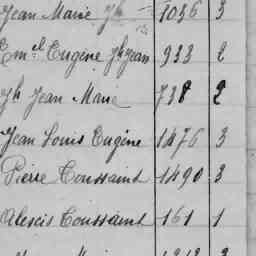 Jean Marie Jh 1036 3
Em.el Eugène Jh Jean 933 2
Jh Jean Marie 738 2
Jean Louis Eugène 1476 3
Pierre Toussaint 1490 3
Alexis Toussaint 161 1